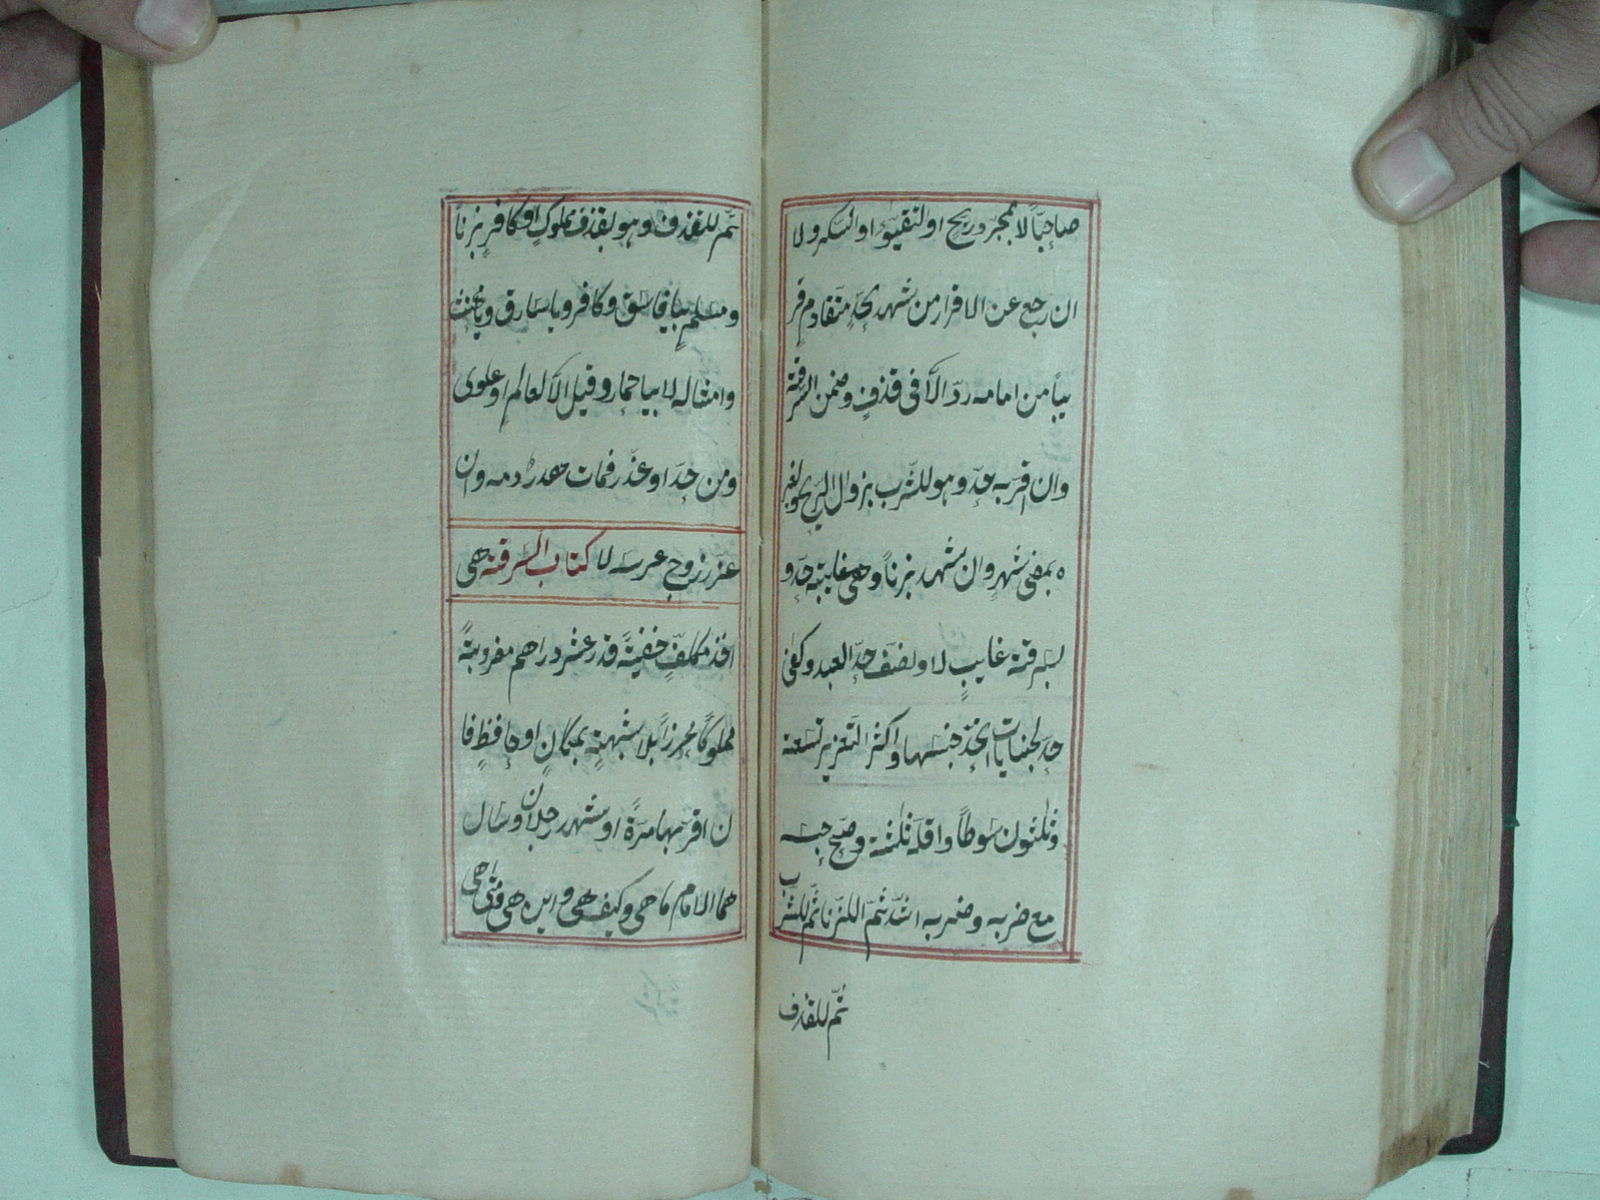 صاحبًا لا بمجرد ريح او لتقيؤ او السكر ولا
ان رجع عن الاقرار من شهد بحدٍ متقادم قر
يبا من امامه ردّ الا فى قذفٍ وضمن السرقة
وان اقرّ به حدّ وهو للشرب بزوال الريح ولغير
ه بمضى شهرٍ وان شهد بزناً وهى غايبة حدّ و
بسرقة غايبٍ لا ونصف حدّ العبد وكفى
حد لجنايات اتحد جنسها واكثر التعزير تسعة
وثلثون سوطاً واقله ثلثة وصح حبسه
مع ضربه وضربه اشد ثمّ للزنا ثمّ للشرب
ثمّ للقذف
ثم للقذف وهو بقذف مملوكٍ او كافرٍ بزناً
ومسلمٍ بيا فاسق وكافر ويا سارق ويا مخنث
وامثاله لا بيا حمار وقيل الا لعالمٍ او علوى
ومن حدّ او عذّر فمات هدر دمه وان
عزر زوج عرسه لا كتاب السرقة هى
اخذ مكلفٍ خفيةً قدر عشر دراهم مضروبةً
مملوكًا محرزاً بلا شبهةٍ بمكانٍ او حافظٍ فا
ن اقر بها مرةً او شهد رجلان وسال
هما الامام ما هى وكيف هى واين هى ومتى هى